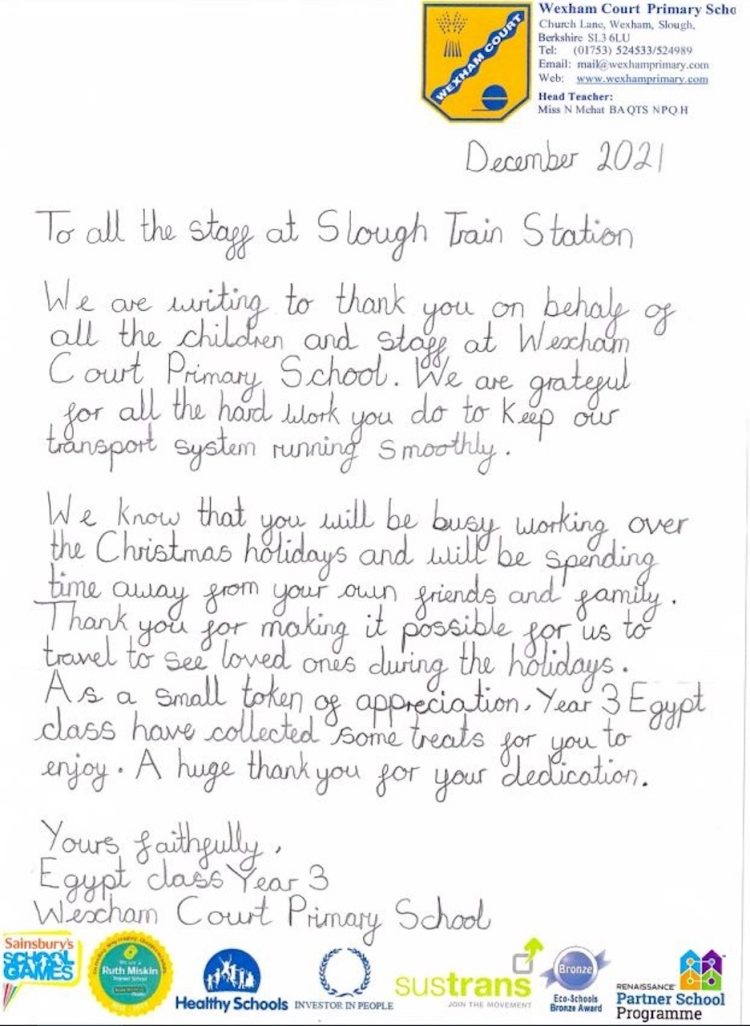 Wexham Court Primary Scho
Church Lane, Wexham, Slough,
Berkshire SL3 6LU
Tel: (01753) 524533/524989
Email: mail@wexhamprimary.com
Web: www.wexhamprimary.com
Head Teacher:
Miss N Mehat BA QTS NPQ H
WEXHAM COURT
December 2021
To all the staff at Slough Train Station
We are writing to thank you on behalf of
all the children and staff at Wexham
Court Primary School. We are grateful
for all the hard work you do to keep our
transport system running smoothly.
We know that you will be busy working over
the Christmas holidays and will be spending
time away from your own friends and family.
Thank you for making it possible for us to
travel to see loved ones during the holidays.
As a small token of appreciation, Year 3 Egypt
class have collected some treats for you to
enjoy. A huge thank you for your dedication.
Yours faithfully,
Egypt class Year 3
Wexham Court Primary School
Sainsbury's
SCHOOL
GAMES
Ruth Miskin
Healthy Schools
INVESTOR IN PEOPLE
sustrans
JOIN THE MOVEMENT
Bronze
Eco-Schools
Bronze Award
RENAISSANCE
Partner School
Programme